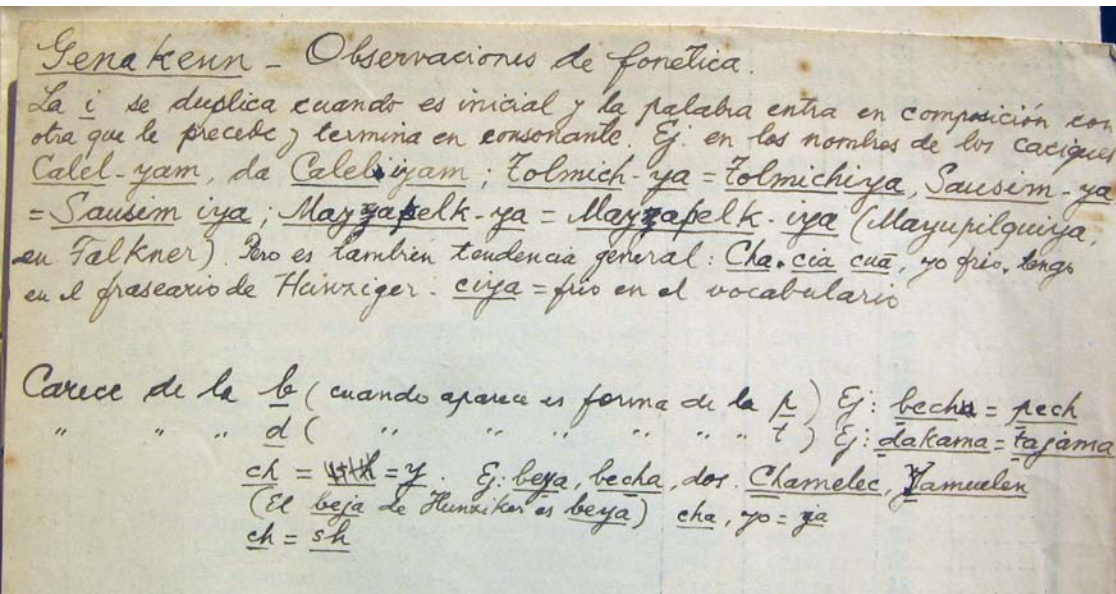 Gena kenn - Observaciones de fonética.
La i se duplica cuando es inicial y la palabra entra en composición con
otra que le precede y termina en consonante. Ej. en los nombres de los caciques
Calel-yam, da Calel iyam; Tolmich-ya = Tolmichiya, Sausim-ya
= Sausim iya; Mayzapelk-ya = Mayzapelk-iya (Mayupilquiya,
en Falkner). Pero es también tendencia general: Cha. cia cuā, yo frio, tengo
en el fraseario de Hunziger. ciya = frio en el vocabulario
Carece de la b (cuando aparece es forma de la p) Ej: becha = pech
" " " d ( " " " " " " t) Ej: dakama = tajama
ch = = y. Ej: beya, becha, dos. Chamelec, Yamuelen
(El beja de Hunziker es beya) cha, yo = ya
ch = sh